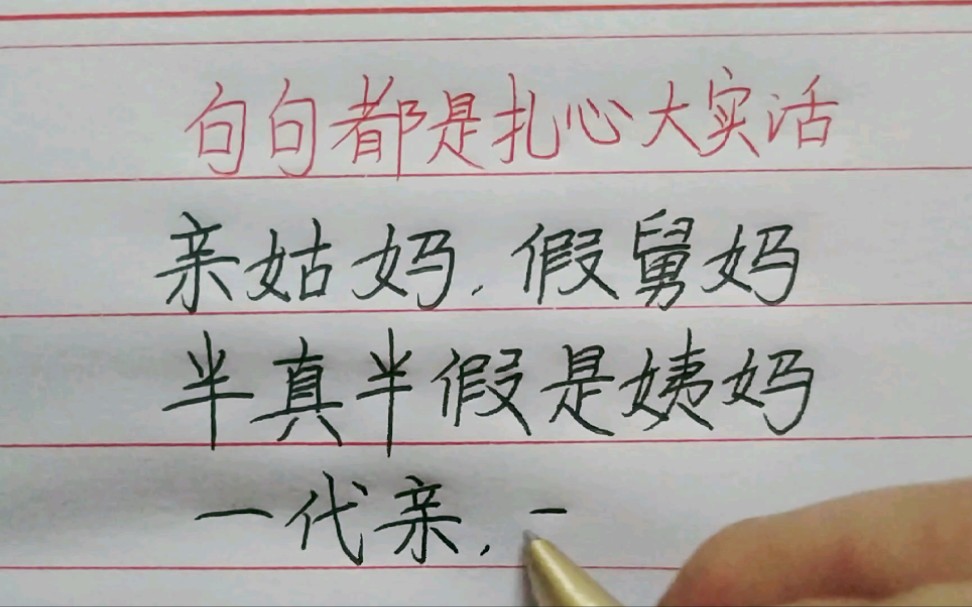 句句都是扎心大实活
亲姑妈.假舅妈
半真半假是姨妈
一代亲,一